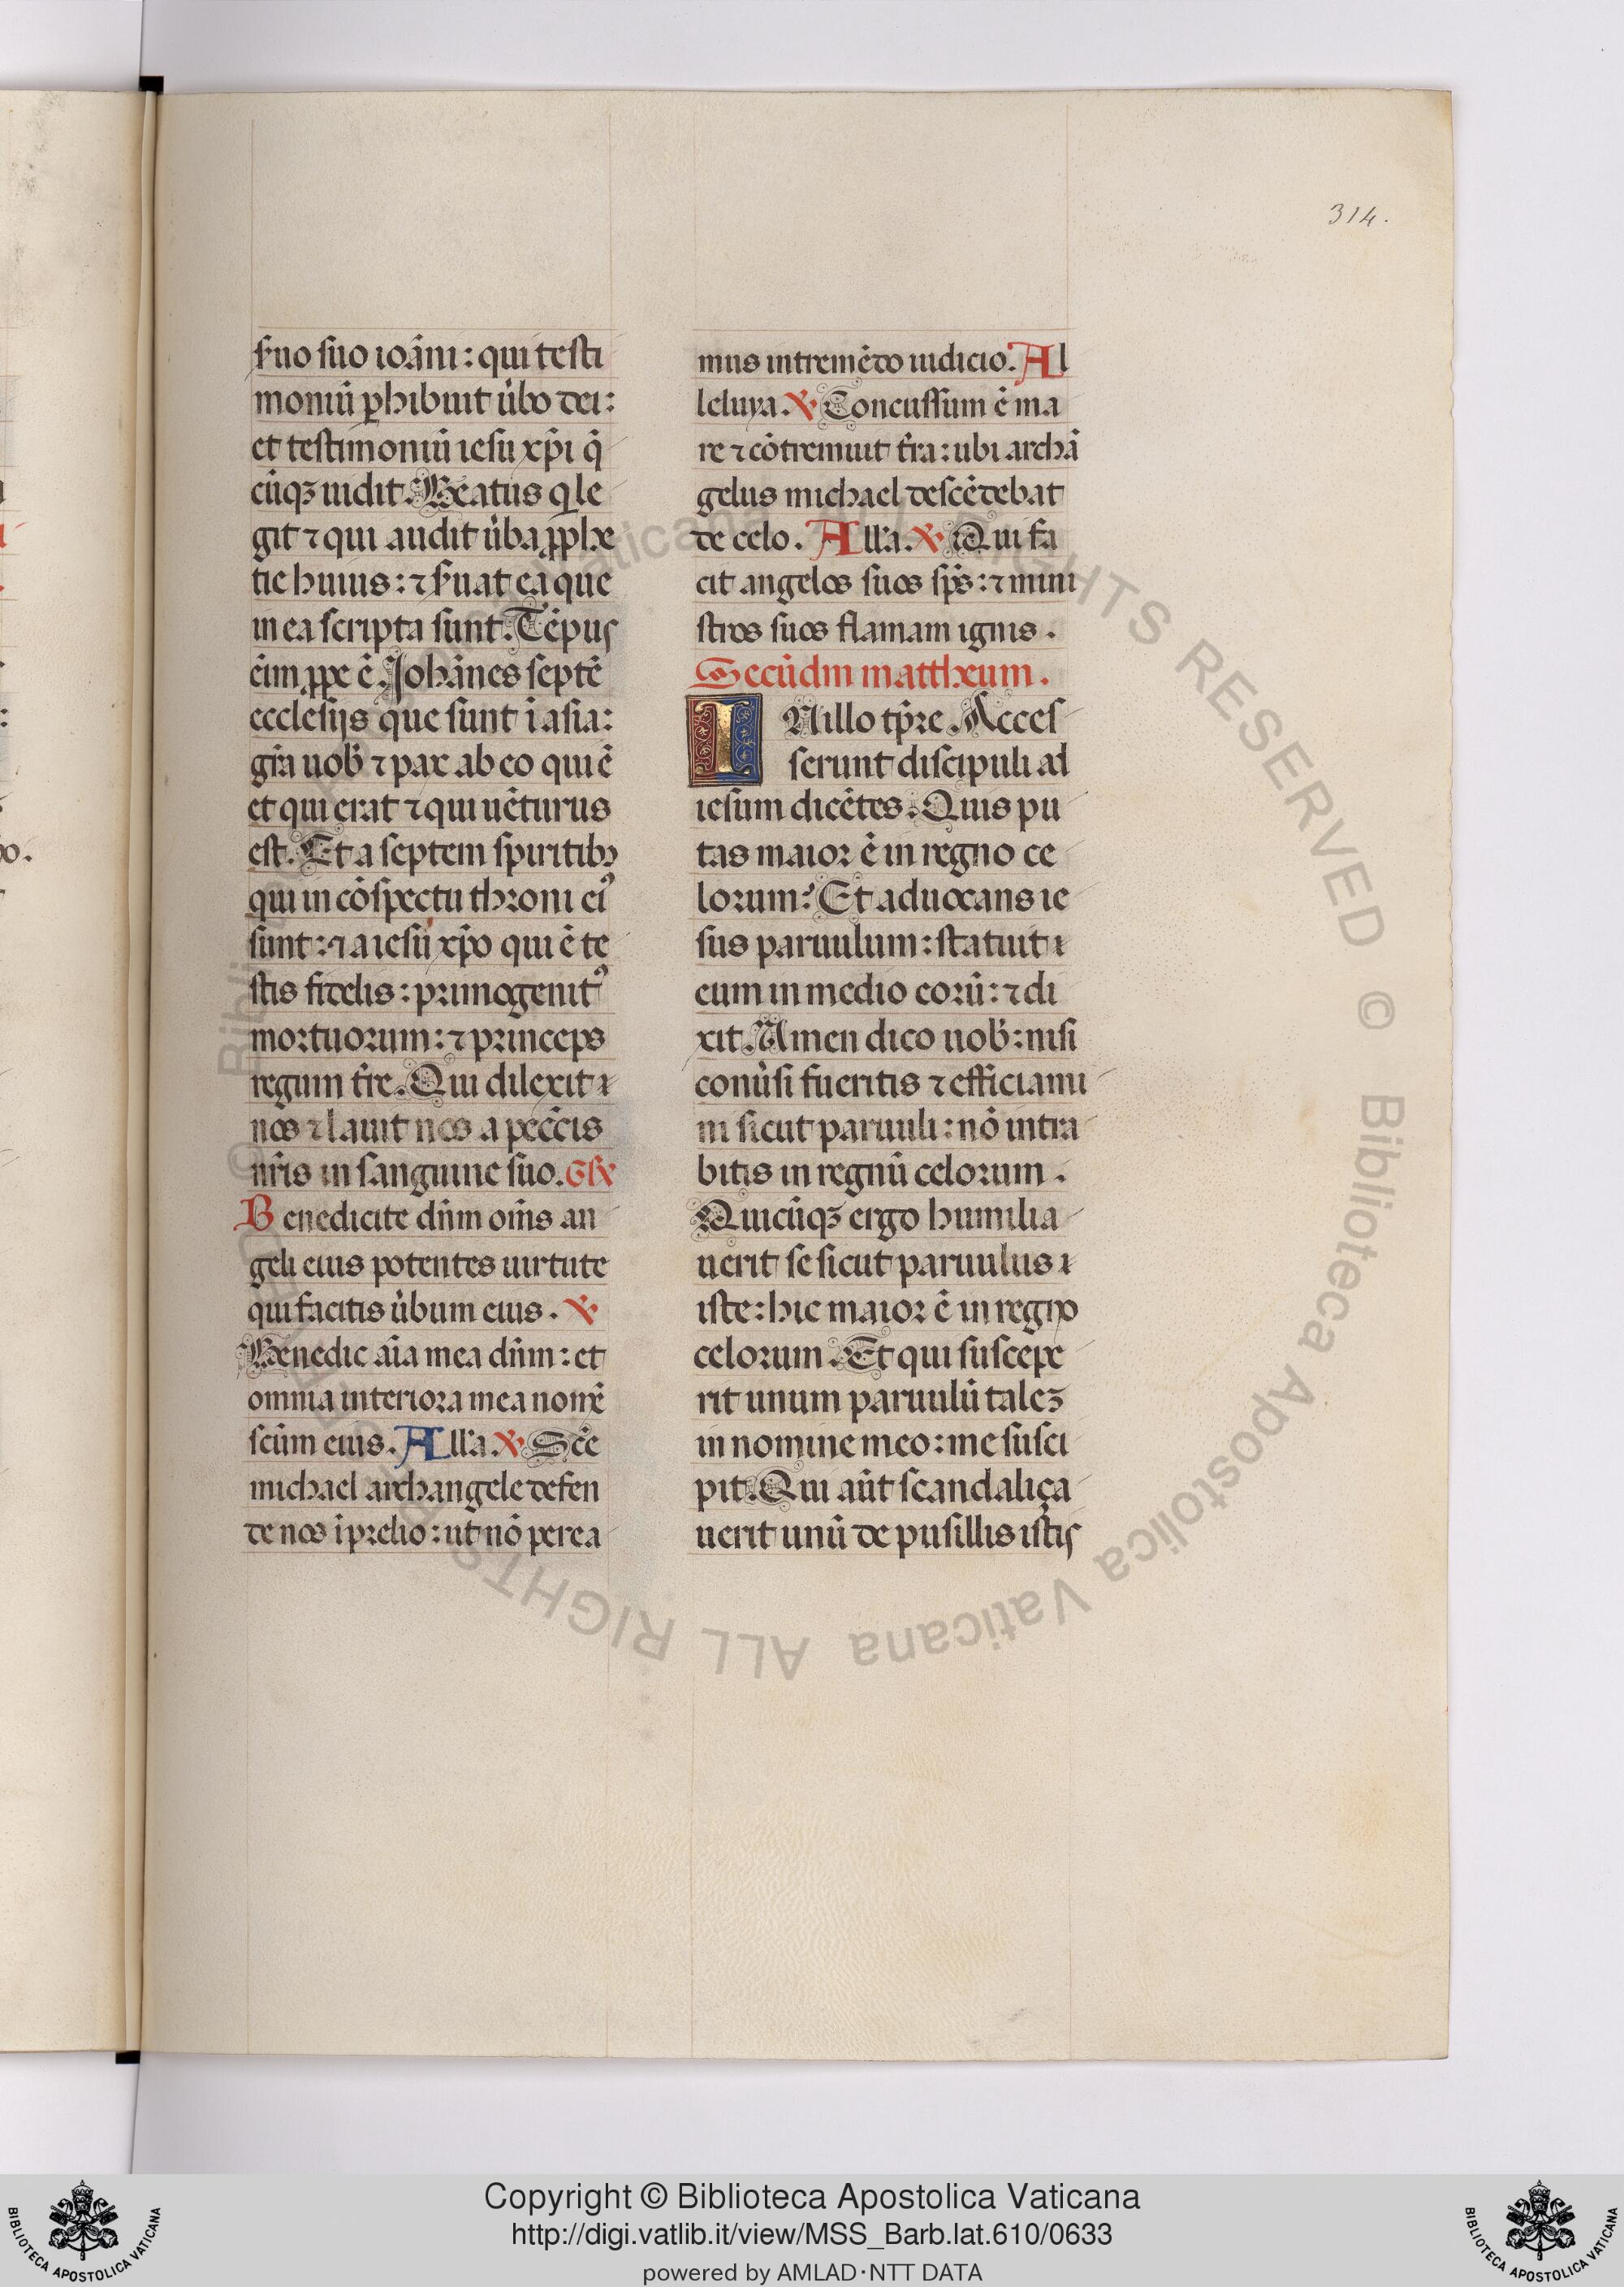 314.
s̄uo suo ioāni: qui testi
moniū ꝑhibuit u̇bo dei:
et testimoniū iesu xp̄i q̄
cūqꝫ uidit. Beatus q̇ le
git ⁊ qui audit u̇ba ꝓph̄e
tie huius: ⁊ s̄uat ea que
in ea scripta sunt. Tēpus
eīm ꝓpe ē. Johānes septē
ecclesijs que sunt ī asia:
gr̄a uob̄ ⁊ pax ab eo qui ē
et qui erat ⁊ qui uēturus
est. Et a septem spiritibꝫ
qui in cōspectu throni eiꝰ
sunt: ⁊ a iesu xp̄o qui ē te
stis fidelis: primogenitꝰ
mortuorum: ⁊ princeps
regum tr̄e. Qui dilexit
nos ⁊ lauit nos a pecc̄is
nr̄is in sanguine suo. Gr̄
Benedicite dn̄m om̄s an
geli eius potentes uirtute
qui facitis u̇bum eius. ℣
Benedic aīa mea dn̄m: et
omnia interiora mea nomē
sc̄um eius. All'a. ℣ Sc̄e
michael archangele defen
de nos ī prelio: ut nō perea
mus in tremēdo iudicio. Al
leluya. ℣ Concussum ē ma
re ⁊ cōtremuit tr̄a: ubi archā
gelus michael descēdebat
de celo. All'a. ℣ Qui fa
cit angelos suos sp̄s: ⁊ mini
stros suos flamam ignis.
Secūdm mattheum.
IN illo tp̄re. Acces
serunt discipuli ad
iesum dicētes. Quis pu
tas maior ē in regno ce
lorum? Et aduocans ie
sus paruulum: statuit
eum in medio eorū: ⁊ di
xit. Amen dico uob̄: nisi
conu̇si fueritis ⁊ efficiami
ni sicut paruuli: nō intra
bitis in regnū celorum.
Quicūqꝫ ergo humilia
uerit se sicut paruulus
iste: hic maior ē in regno
celorum. Et qui suscepe
rit unum paruulū taleꝫ
in nomine meo: me susci
pit. Qui aūt scandaliça
uerit unū de pusillis istis
© Biblioteca Apostolica Vaticana ALL RIGHTS RESERVED
Copyright © Biblioteca Apostolica Vaticana
http://digi.vatlib.it/view/MSS_Barb.lat.610/0633
powered by AMLAD·NTT DATA
BIBLIOTECA APOSTOLICA VATICANA
BIBLIOTECA APOSTOLICA VATICANA